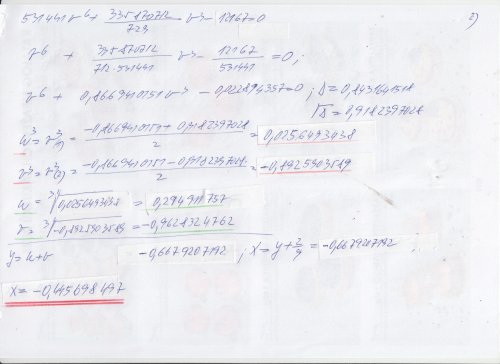 2)
531441v⁶ + 335870712/729 v³ - 12167 = 0
v⁶ + 335870712/712·531441 v³ - 12167/531441 = 0;
v⁶ + 0,8669410151v³ - 0,022894357 = 0; D = 0,8431641518
√D = 0,9182397028
u³ = v³(1) = -0,8669410151 + 0,9182397028/2 = 0,0256493438
v³ = v³(2) = -0,8669410151 - 0,9182397028/2 = -0,8925903589
u = ³√0,0256493438 = 0,294911757
v = ³√-0,8925903589 = -0,9628324762
y = u+v -0,6679207192; x = y + 2/9 = -0,6679207192
x = -0,445698497